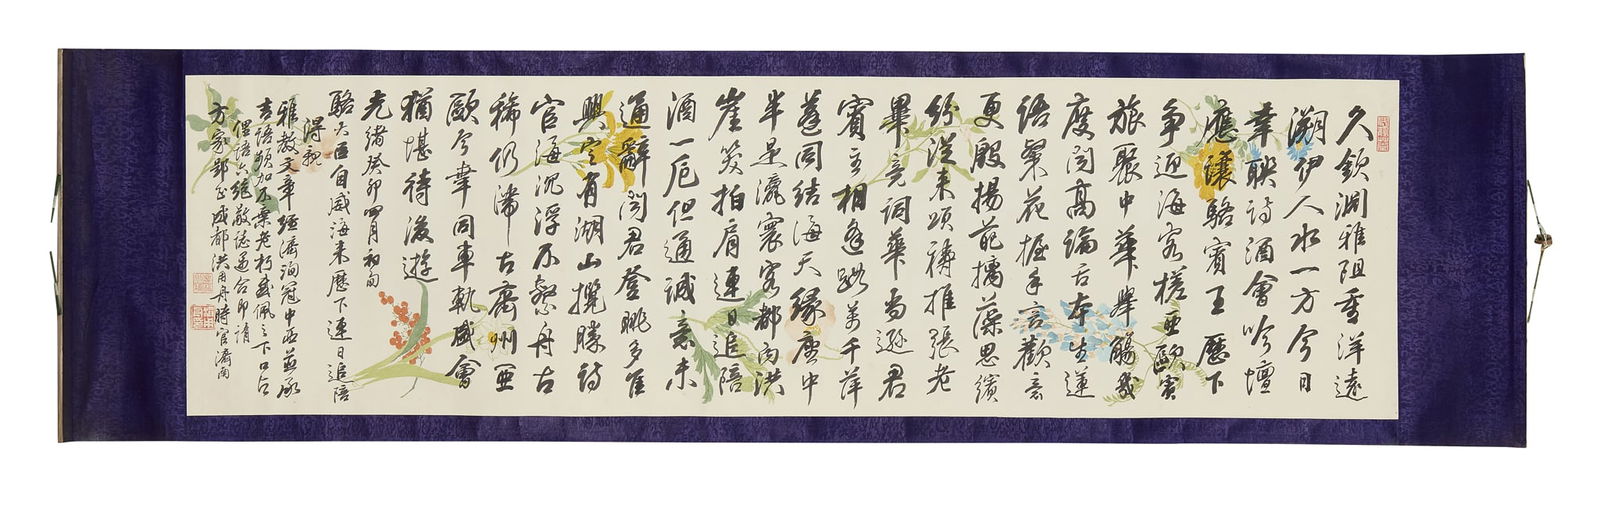 久欽淵雅阻重洋遠
溯伊人水一方今日
幸聯詩酒會吟壇
應讓駱賓王歷下
爭迎海客槎亞歐賓
旅聚中華舉觴幾
度聞高論舌本生蓮
語粲花握手言歡意
更殷揚葩摛藻思繽
紛從來頌禱推張老
畢竟詞華尚遜君
賓主相逢跡萍千
蓬同結海天緣座中
半是瀛寰客都向洪
崖笑拍肩連日追陪
酒一卮但通誠意未
通辭聞君登眺多佳
興定有湖山攬勝詩
官海沉浮不繫舟古
稀仍滯古齊州亞
歐今幸同車軌盛會
猶堪待後遊
光緒癸卯四月初旬
駱大臣自威海來歷下連日追陪
得親
雅教文章經濟洵冠中西並承
吉語頻加不棄老朽感佩之下口占
俚語六絕敬誌遇合即請
方家郢正成都洪用舟時官濟南